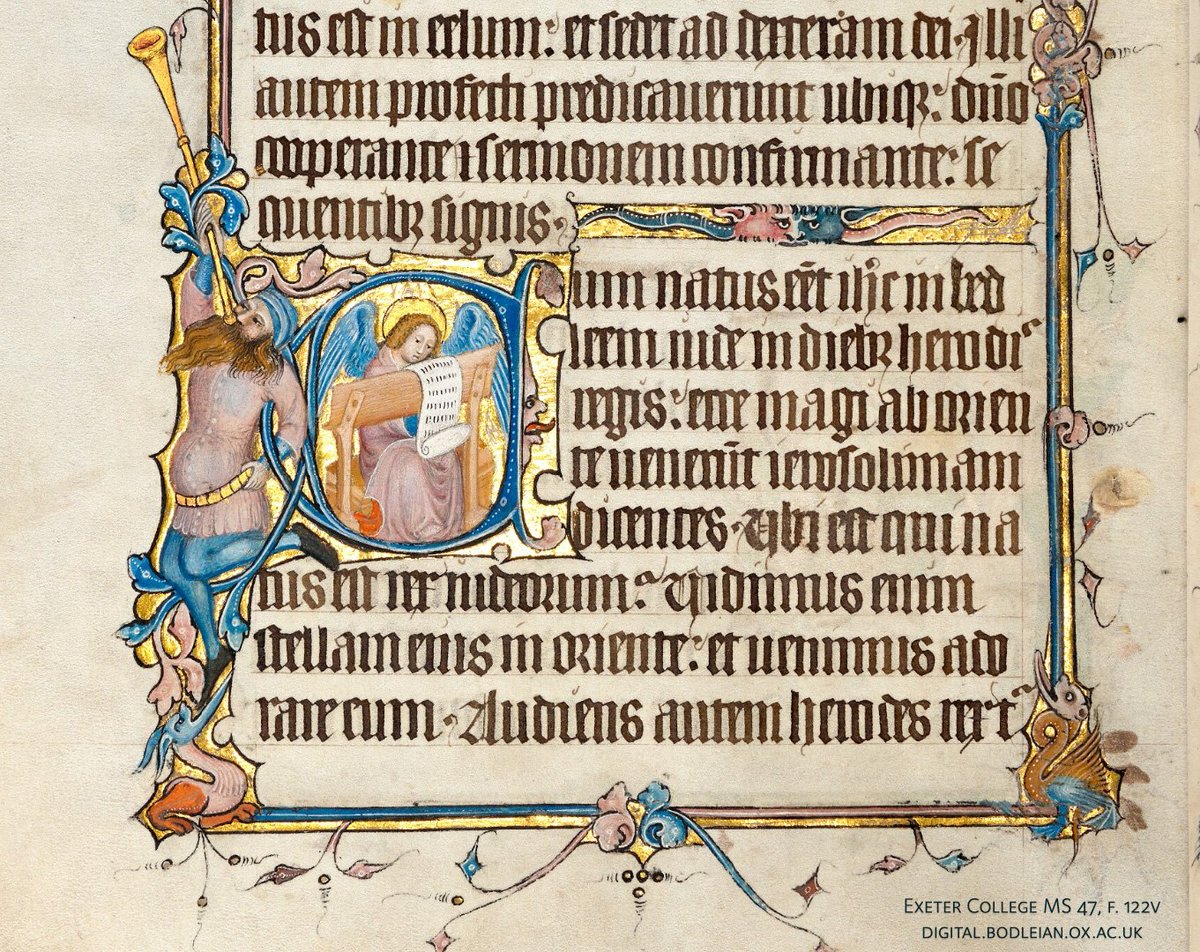 tus est in celum: et sedet ad dexteram dei. Illi
autem profecti predicauerunt ubiqꝫ: dño
cooperante ⁊ sermonem confirmante: se
quentibꝫ signis.
Cum natus eēt ih̄c in bed
leem iude in diebꝫ herodiˢ
regis: ecce magi ab orien
te uenerūt ierosolimam
dicentes. Ubi est qui na
tus est rex iudeorum? Uidimus enim
stellam eius in oriente: et uenimus ado
rare eum. Audiens autem herodes rex t
EXETER COLLEGE MS 47, F. 122V
DIGITAL.BODLEIAN.OX.AC.UK